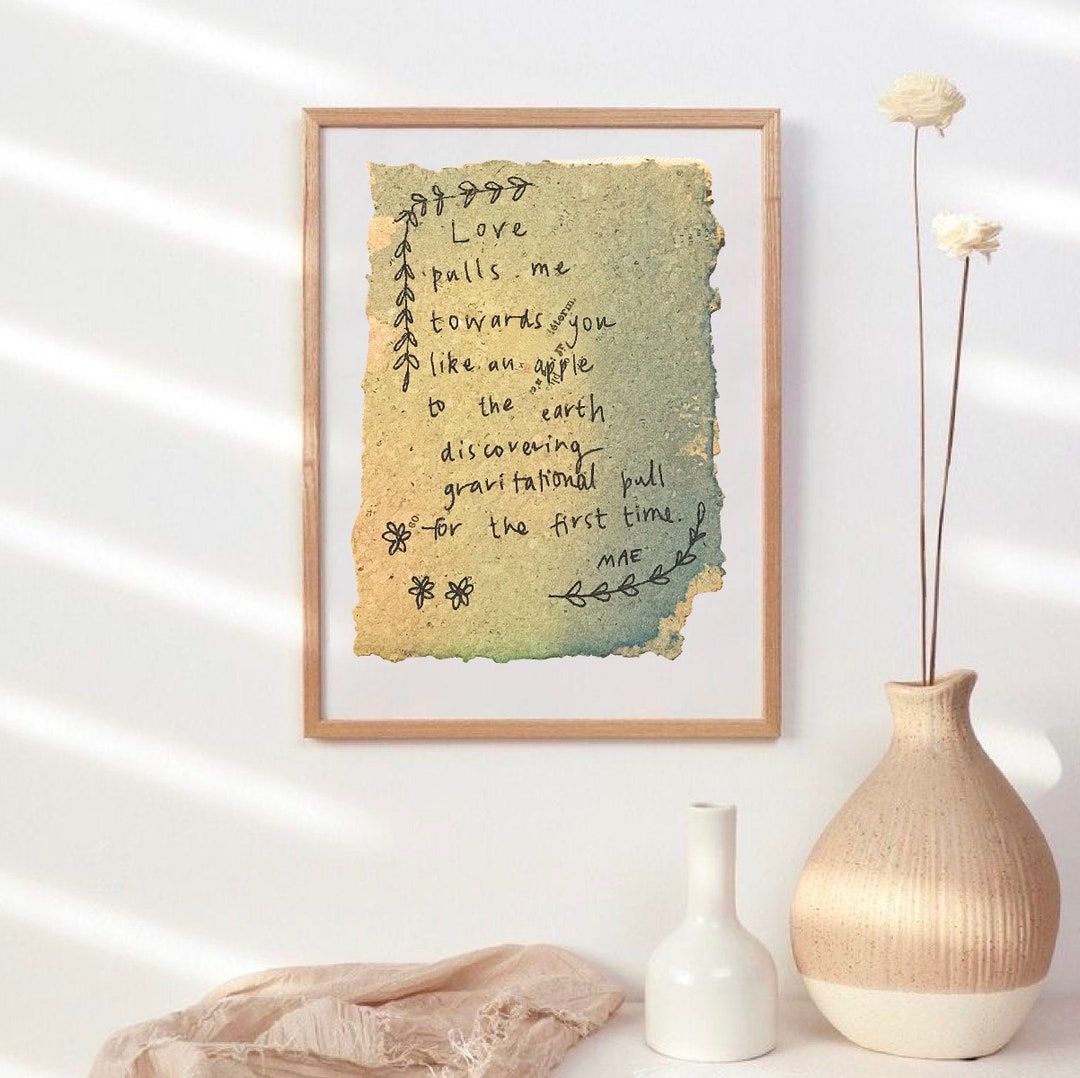 Love
pulls me
towards you
like an apple
to the earth
discovering
gravitational pull
for the first time.
MAE